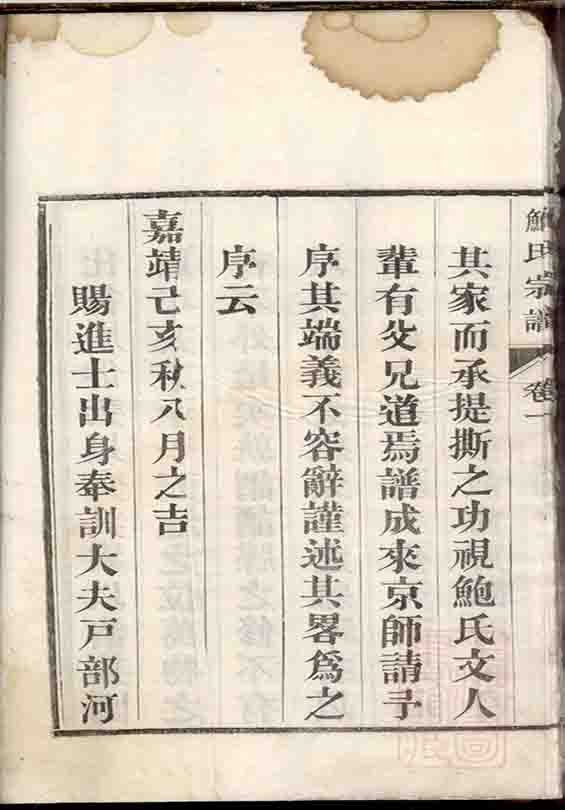 鮑氏宗譜 卷一
共家而承提撕之功視鮑氏文人
輩有父兄道焉譜成來京師請予
序其端義不容辭謹述其畧爲之
序云
嘉靖己亥秋八月之吉
賜進士出身奉訓大夫戸部河